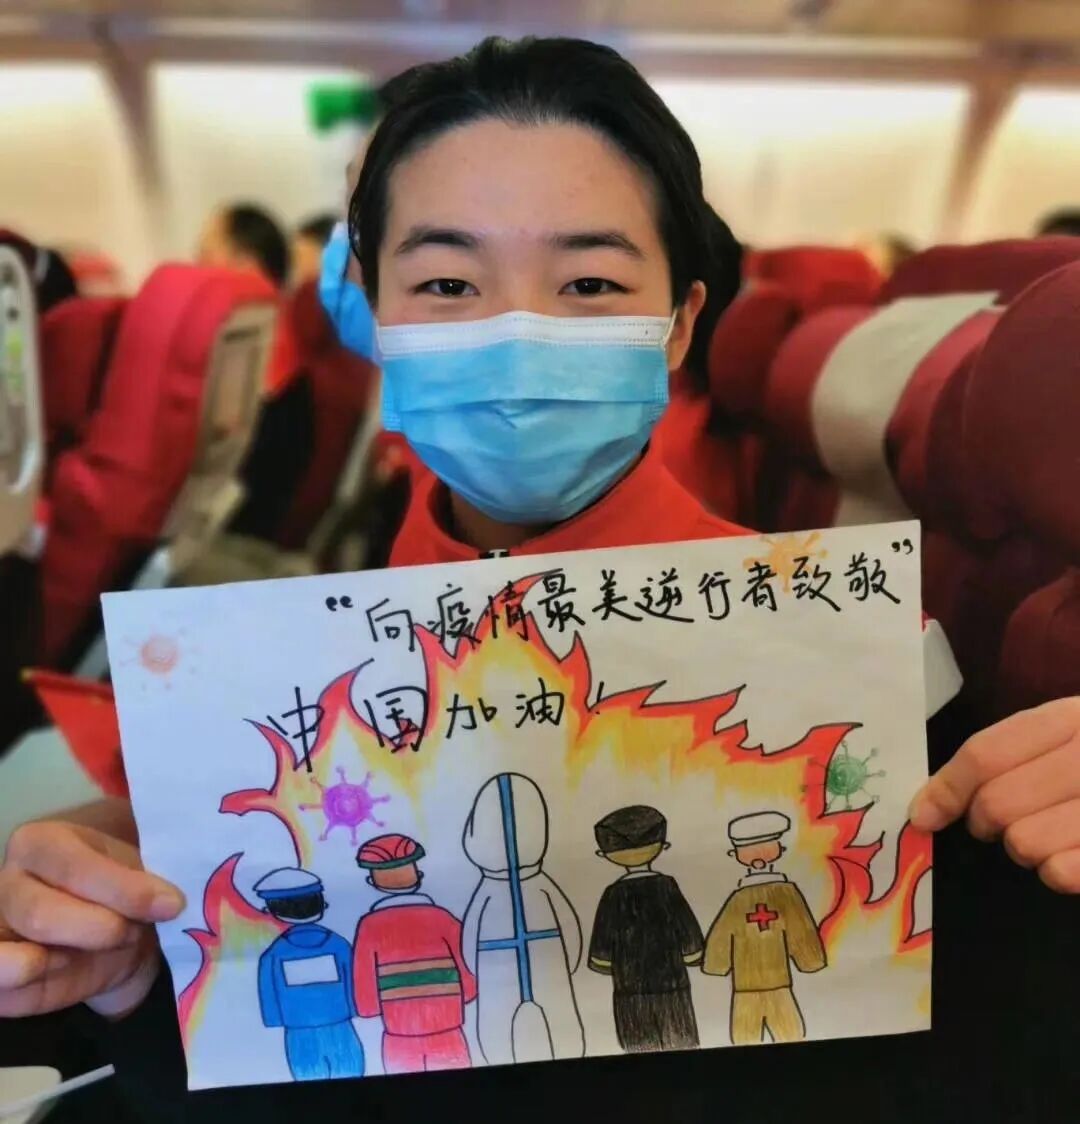 “向疫情最美逆行者致敬”
中国加油！